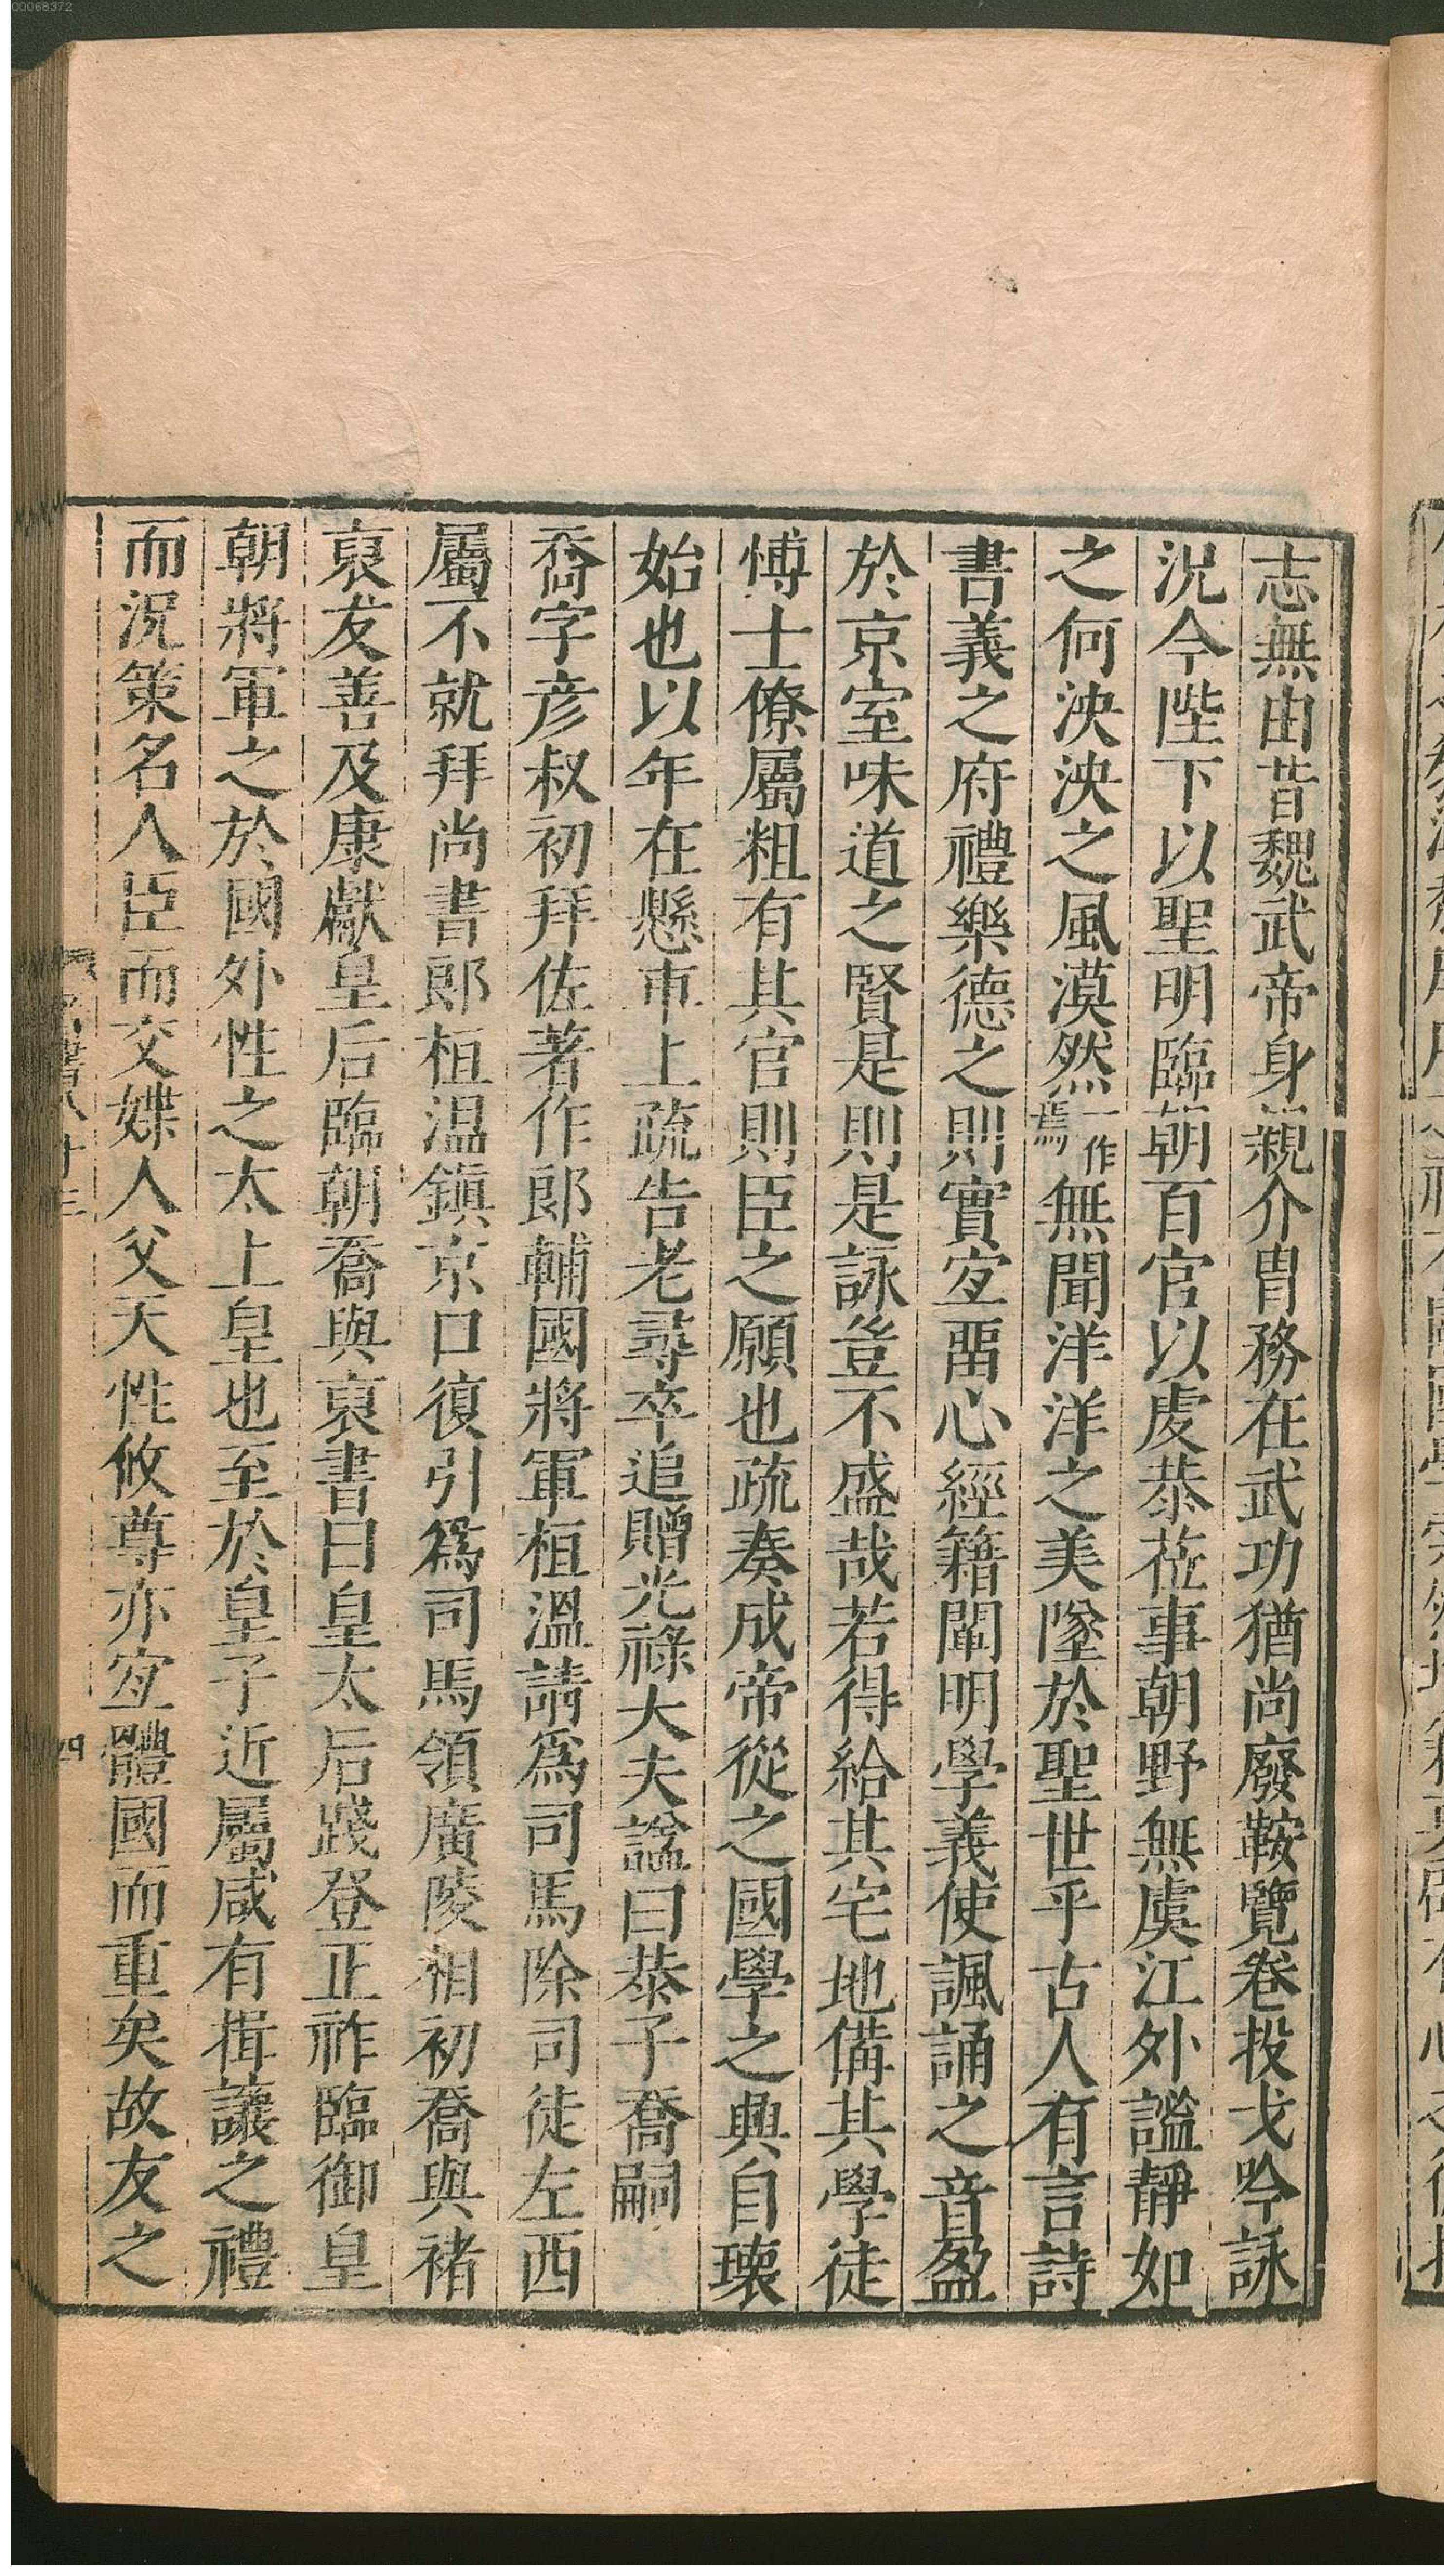 志無由昔魏武帝身親介胄務在武功猶尚廢鞍覽卷投戈吟詠
況今陛下以聖明臨朝百官以虔恭莅事朝野無虞江外謐靜如
之何泱泱之風漠然一作焉無聞洋洋之美墜於聖世乎古人有言詩
書義之府禮樂德之則實宐畱心經籍闡明學義使諷誦之音盈
於京室味道之賢是則是詠豈不盛哉若得給其宅地備其學徒
博士僚屬粗有其官則臣之願也疏奏成帝從之國學之興自瓌
始也以年在懸車上疏告老尋卒追贈光祿大夫諡曰恭子喬嗣
喬字彥叔初拜佐著作郎輔國將軍桓溫請爲司馬除司徒左西
屬不就拜尚書郎桓溫鎮京口復引爲司馬領廣陵相初喬與褚
裒友善及康獻皇后臨朝喬與裒書曰皇太后踐登正祚臨御皇
朝將軍之於國外性之太上皇也至於皇子近屬咸有揖讓之禮
而況策名人臣而交媟人父天性攸尊亦宐體國而重矣故友之
00068372